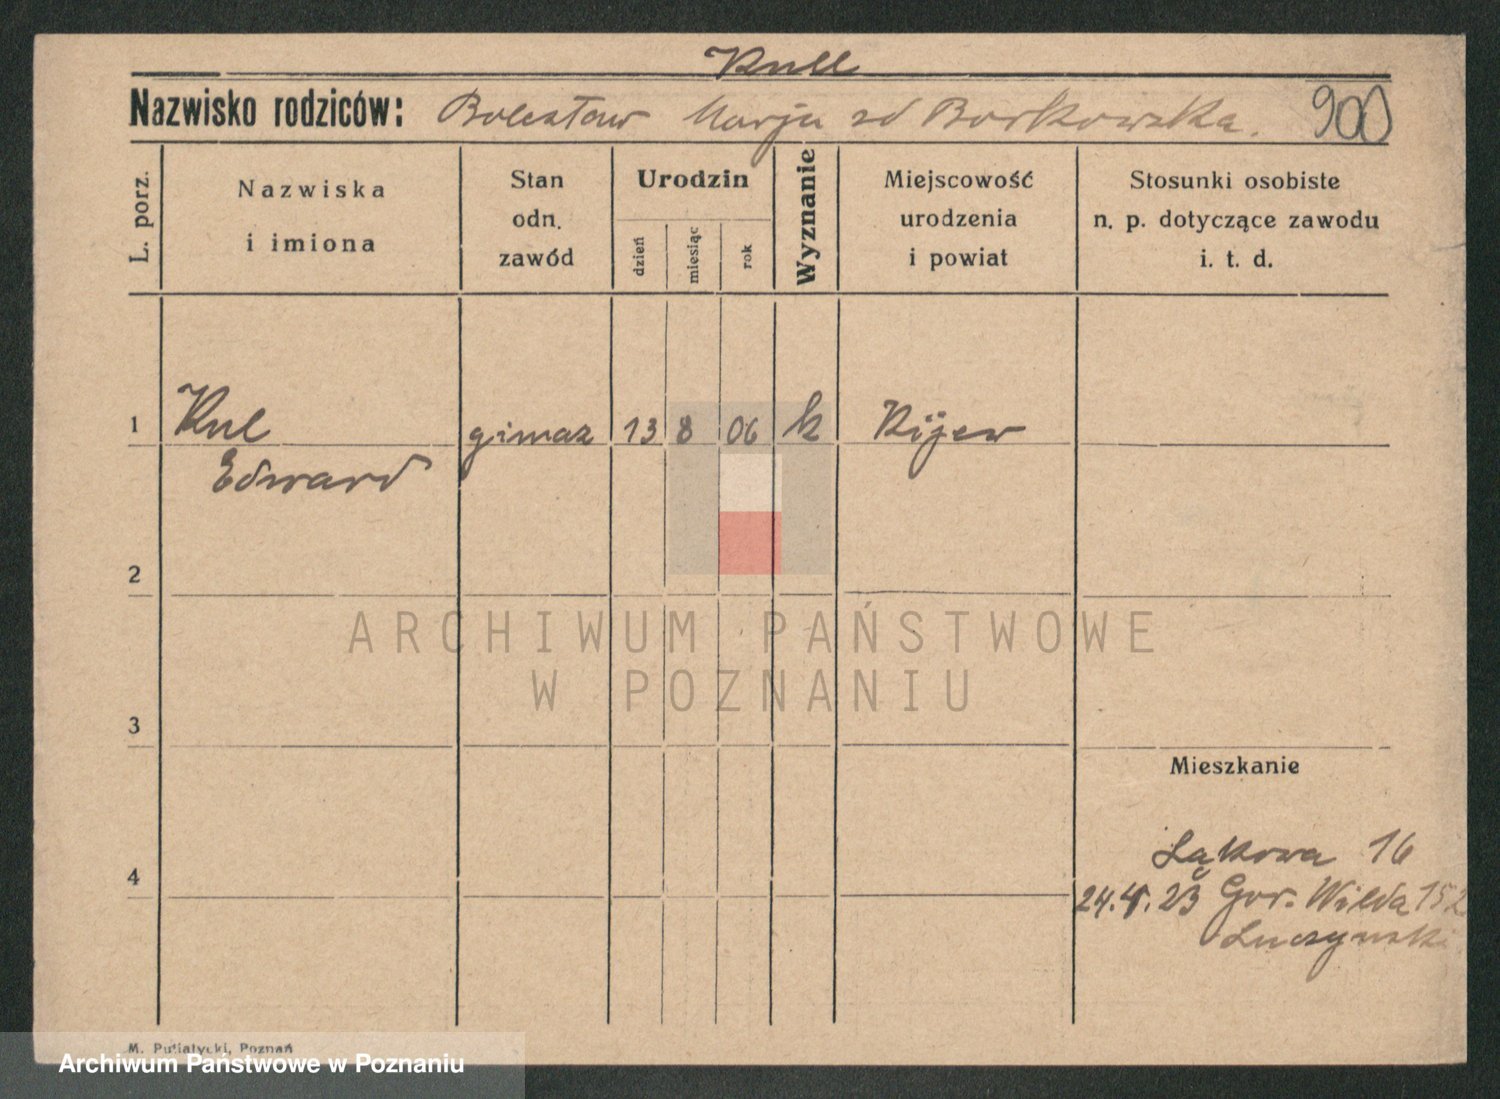 Kull
Nazwisko rodziców: Bolesław Marja zd Borkowska. 900
L. porz.
Nazwiska
i imiona
Stan
odn.
zawód
Urodzin
dzień
miesiąc
rok
Wyznanie
Miejscowość
urodzenia
i powiat
Stosunki osobiste
n. p. dotyczące zawodu
i. t. d.
1 Kul gimaz 13 8 06 k Kijew
Edward
2
ARCHIWUM PAŃSTWOWE
W POZNANIU
3
Mieszkanie
Łąkowa 16
4
24.4.23 Gor. Wilda 152
Luczynski
M. Putiatycki, Poznań
Archiwum Państwowe w Poznaniu